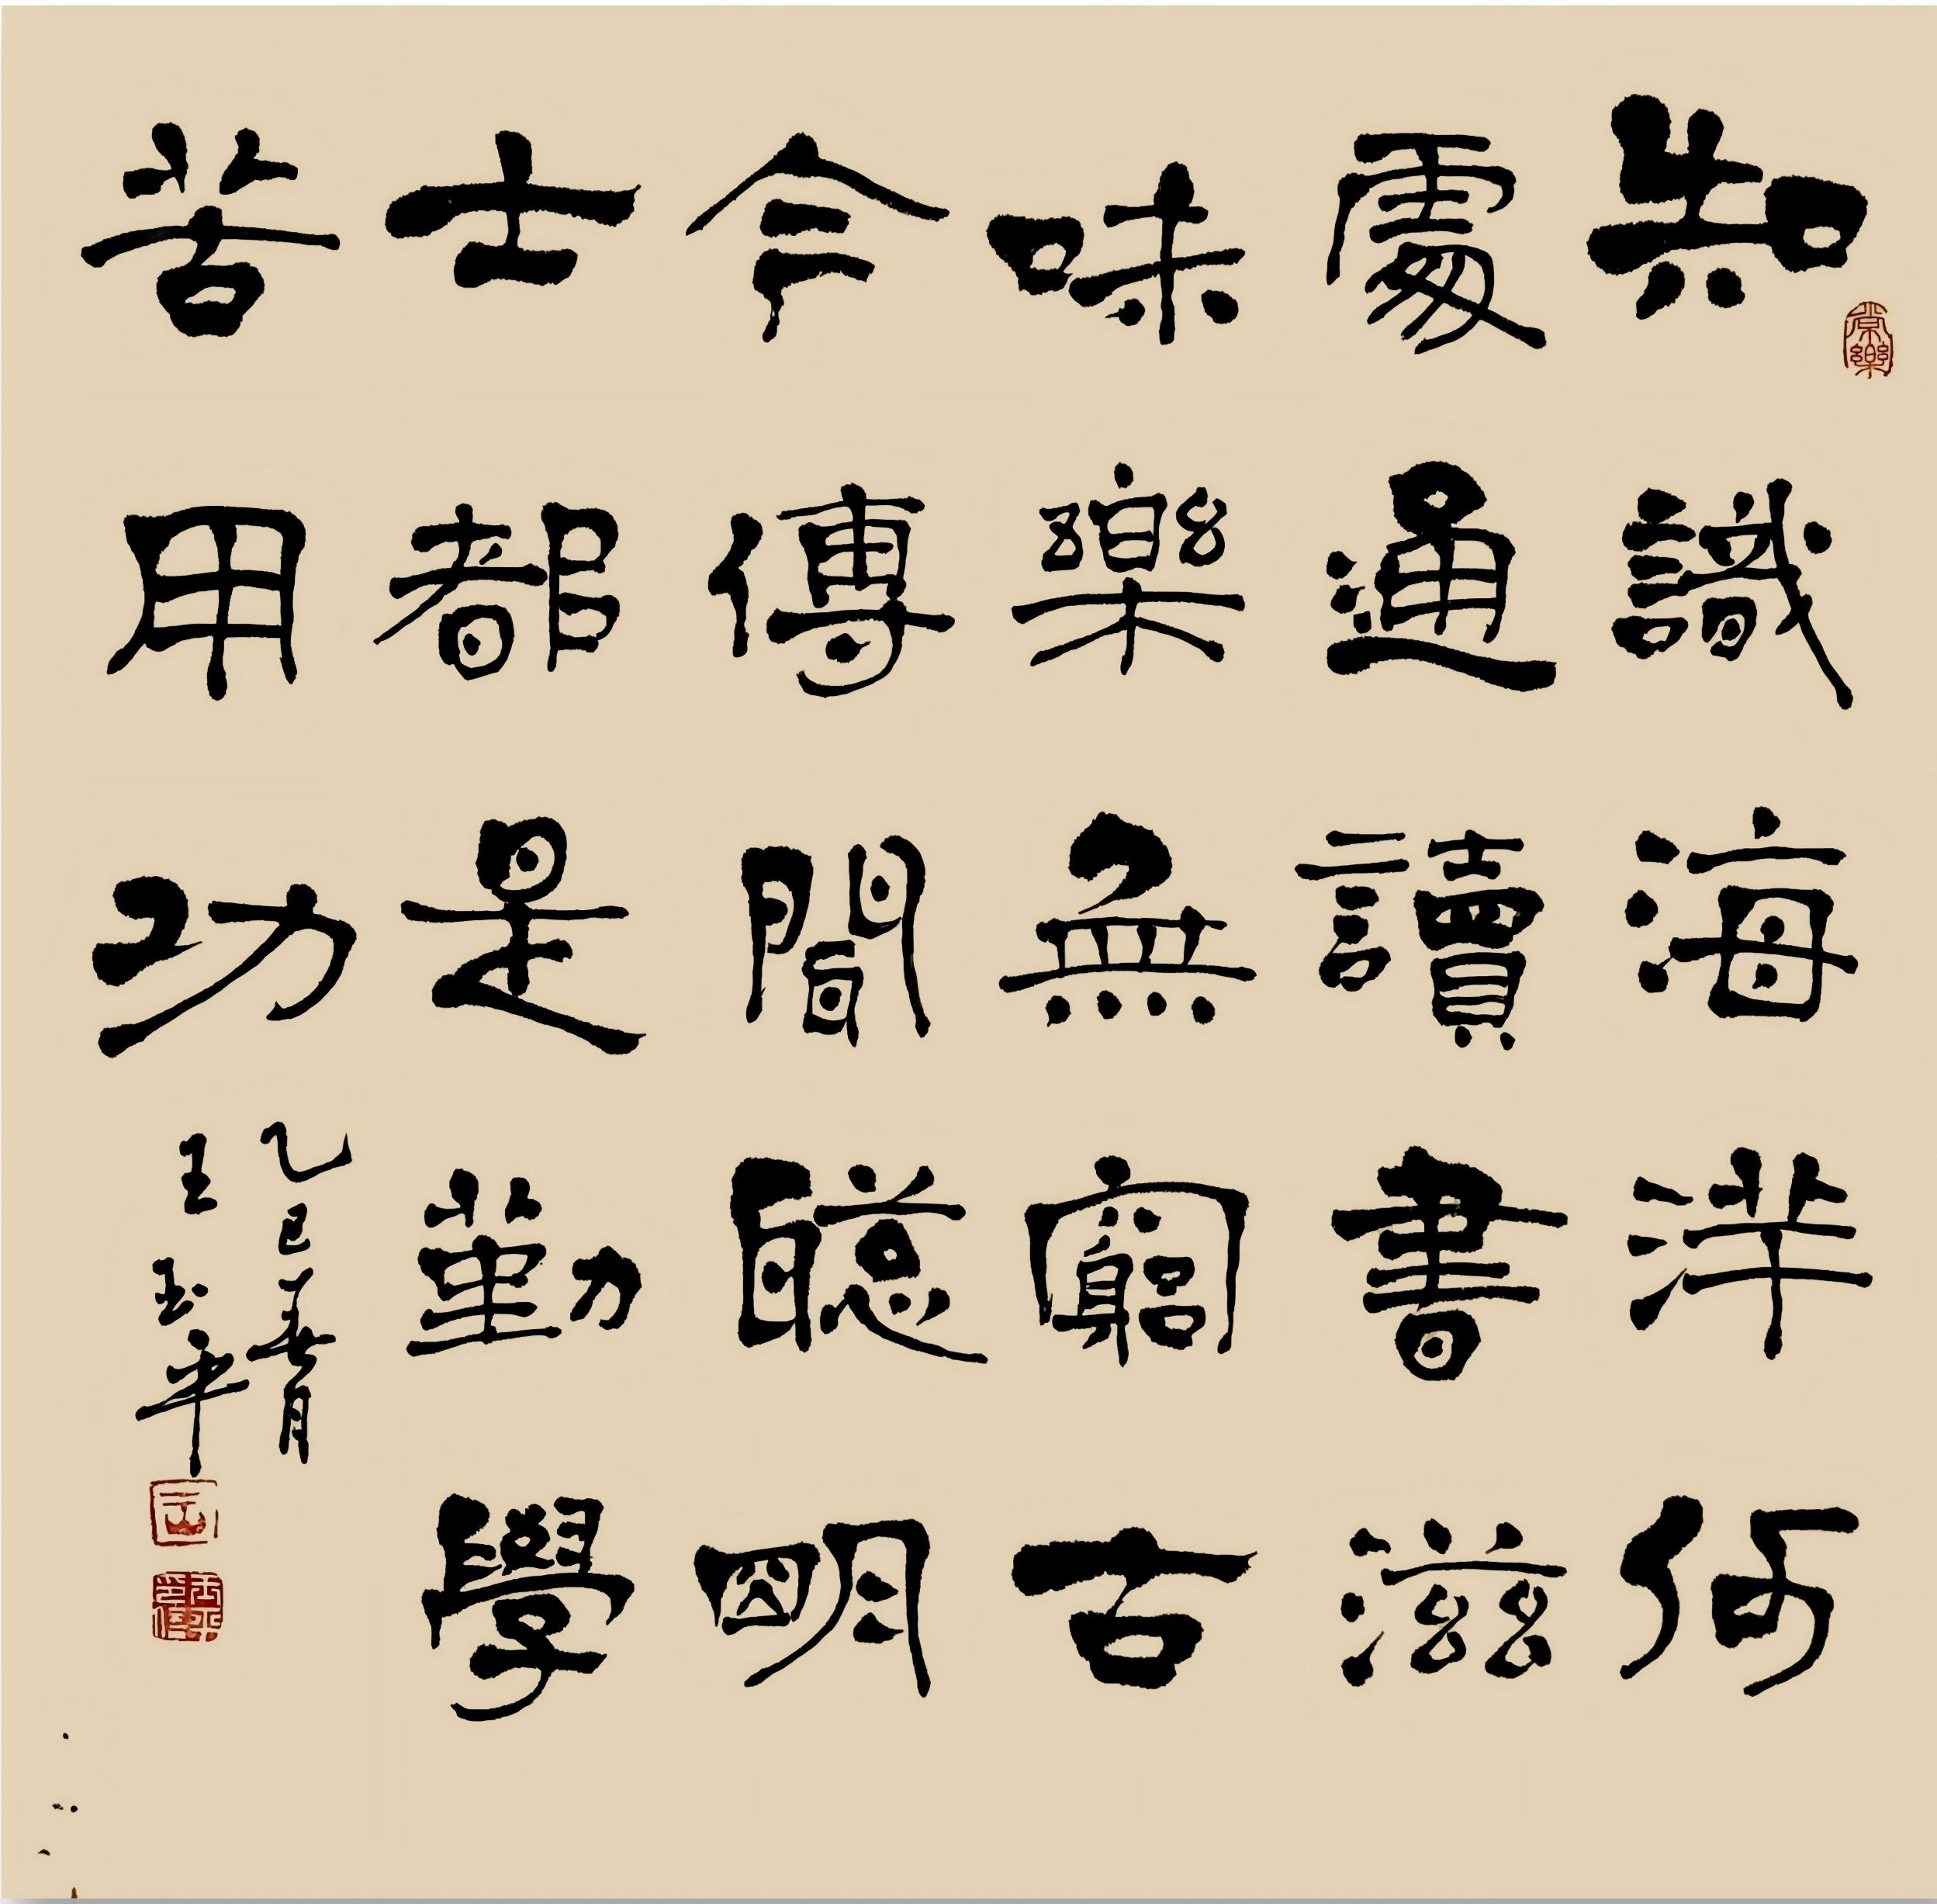 知識海洋何
處通讀書滋
味樂無窮古
今傳聞聰明
士都是勤學
苦用功
乙巳春
王玉華
常樂